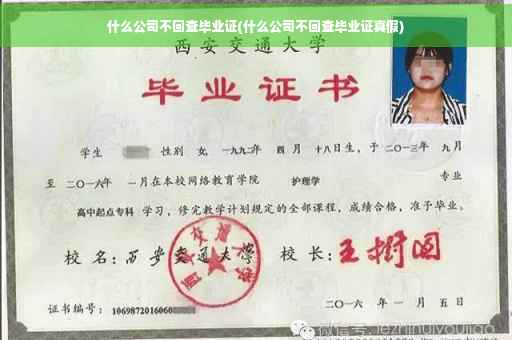 什么公司不回查毕业证(什么公司不回查毕业证真假)
西安交通大学
毕业证书
学生 性别 女, 一九九二年 四月 十八日生, 于 二〇一三年 九月
至 二〇一六年 一月在本校网络教育学院 护理学 专业
高中起点专科 学习, 修完教学计划规定的全部课程, 成绩合格, 准予毕业。
校名: 西安交通大学 校长: 王树国
证书编号: 1069872016060
二〇一六年 一月 五日
微信号: jezhinuiyoujiao